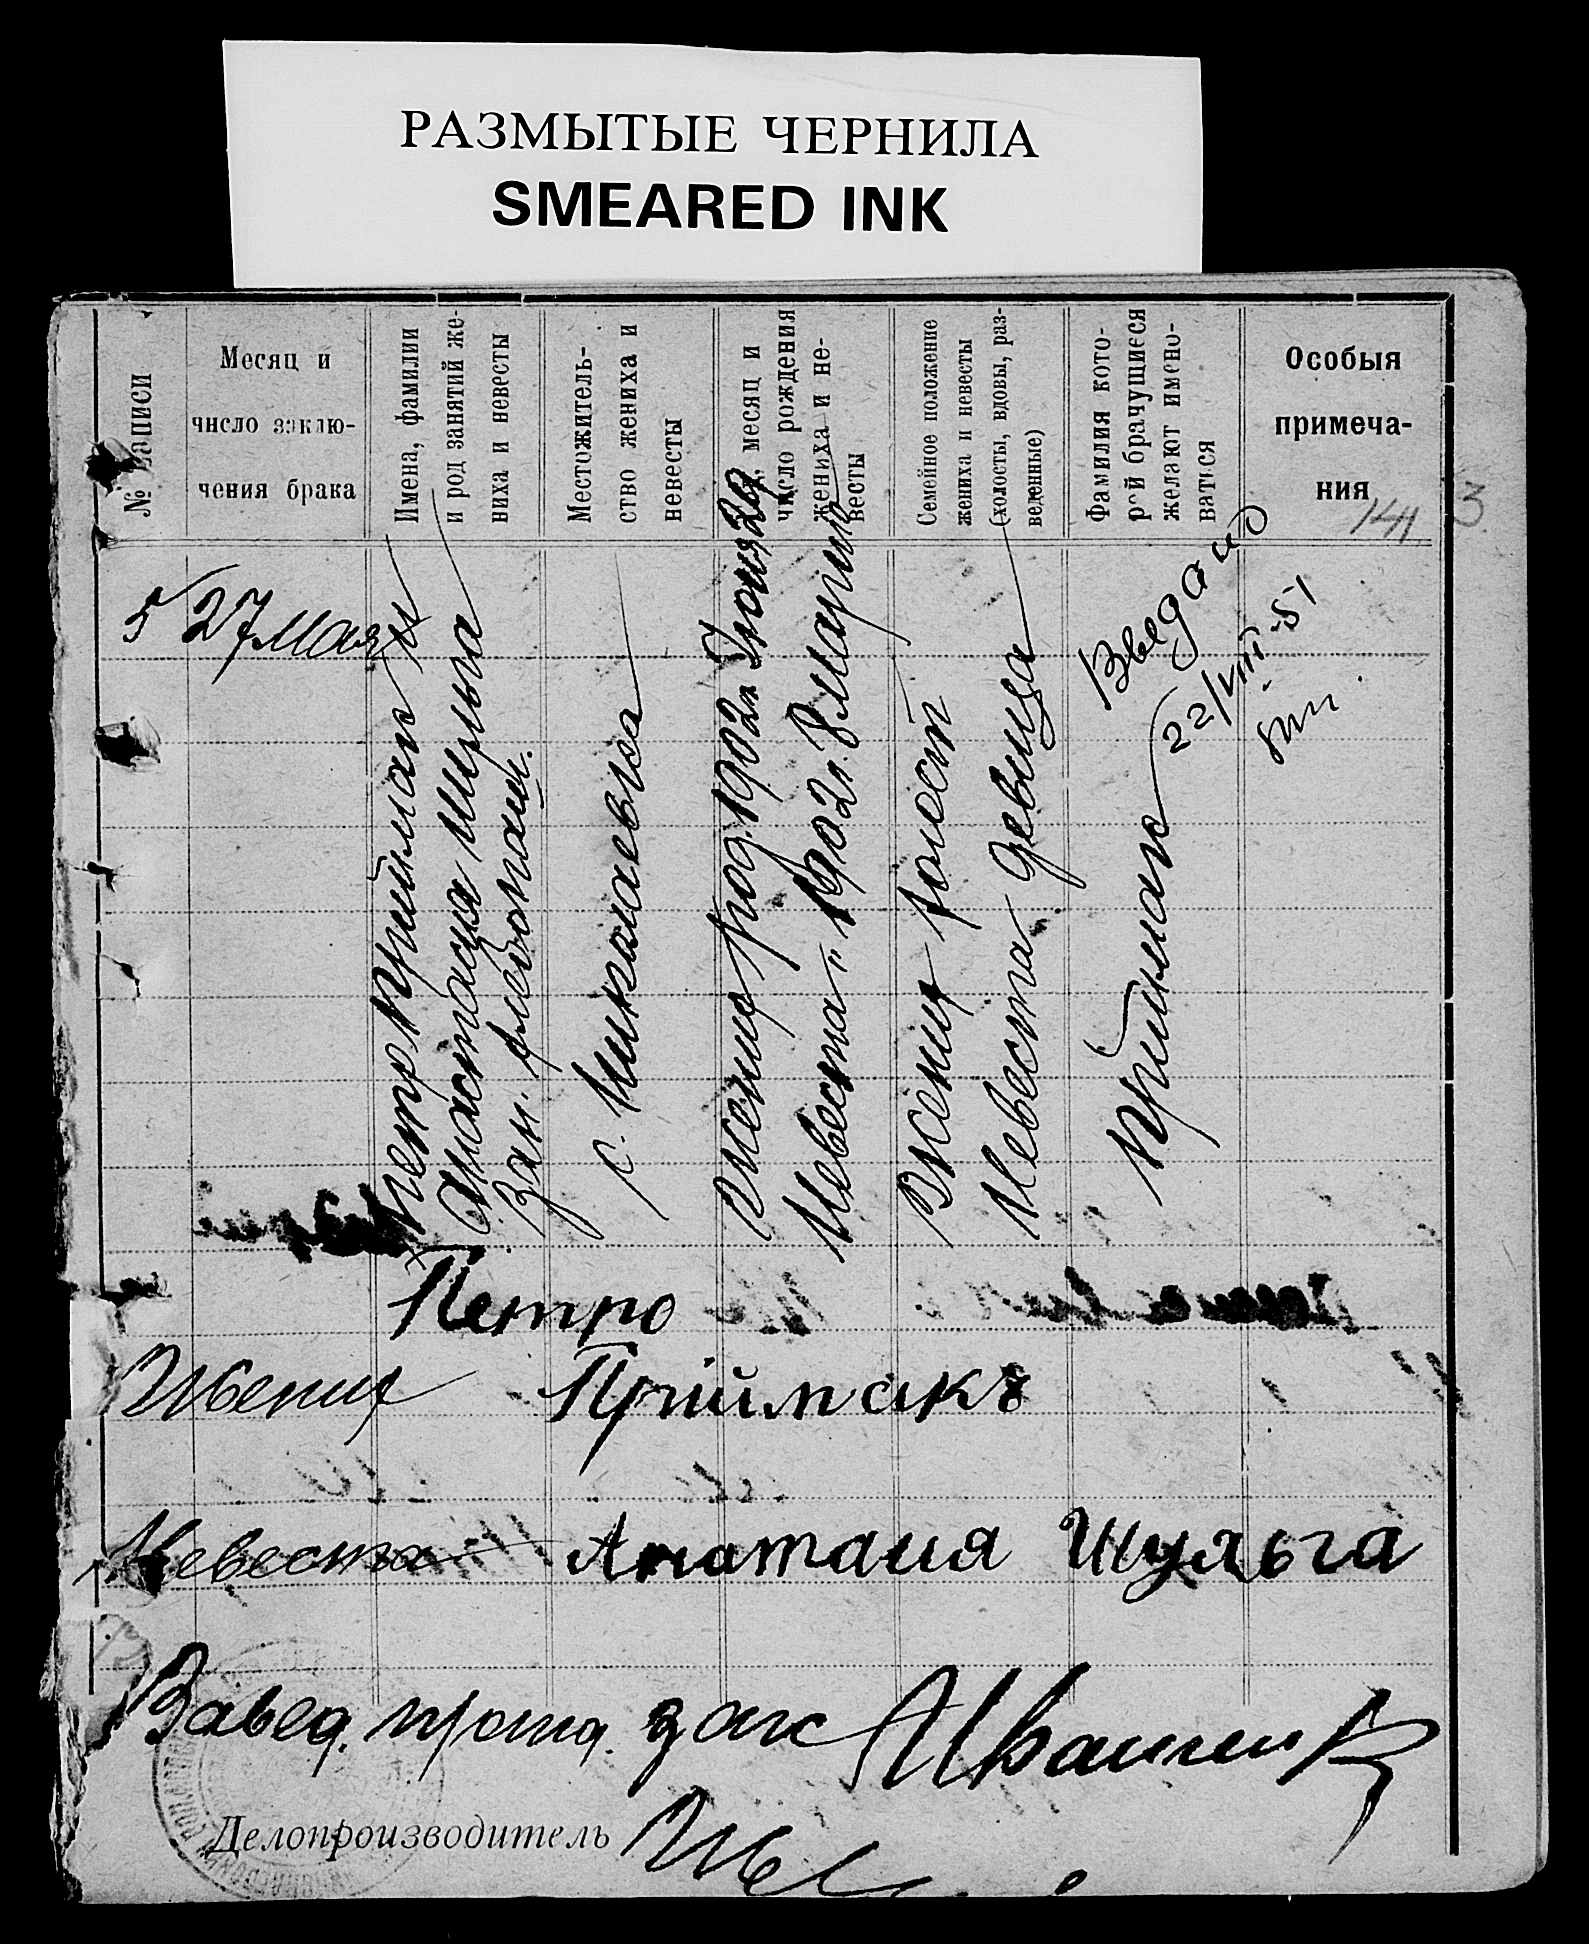 РАЗМЫТЫЕ ЧЕРНИЛА
SMEARED INK
№ записи
Месяц и
число заклю-
чения брака
Имена, фамилии
и род занятий же-
ниха и невесты
Местожитель-
ство жениха и
невесты
месяц и
число рождения
жениха и не-
весты
Семейное положение
жениха и невесты
(холосты, вдовы, раз-
веденные)
Фамилия кото-
рой брачущиеся
желают имено-
ваться
Особыя
примеча-
ния
141
3
5
27 мая
Петр Приймак и
Анастасия Шульга
Зан. хлебопаш.
с. Николаевка
Жених род. 1902г. Июня 29
Невеста " 1902г. 8 Марта
Жених холост
Невеста девица
Приймак
Выдано
22/VIII-51
Петро
Жених Приймакъ
Невеста Анатасия Шульга
Завед. загс
Делопроизводитель